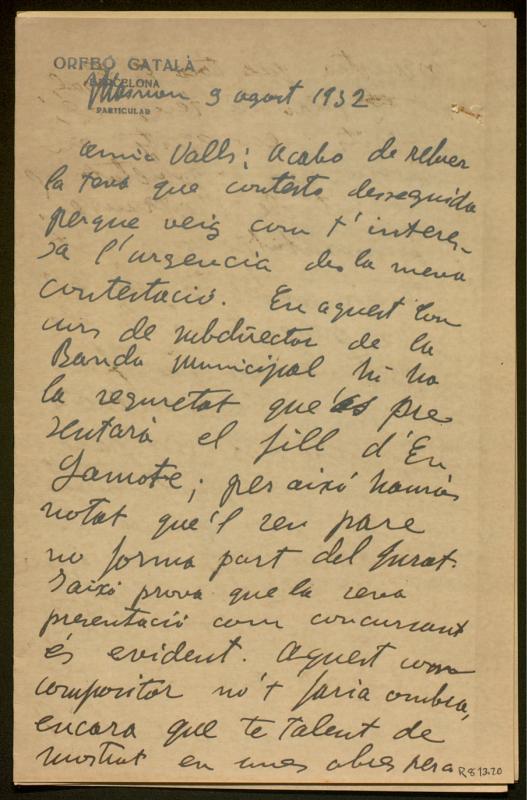 ORFEÓ CATALÀ
BARCELONA
PARTICULAR
Masnou 9 agost 1932
amic Valls; Acabo de rebrer
la teva que contesto desseguida
perque veig com t'interes-
sa l'urgencia des la meva
contestació. En aquest Con
curs de subdirector de la
Banda Municipal hi ha
la seguretat que es pre
sentarà el fill d'En
Lamote; per aixó hauràs
notat que'l seu pare
no forma part del Jurat.
I aixó prova que la seva
presentació com concursant
és evident. Aquest com
compositor no't faria ombra,
encara que te talent de
mostrat en unes obres pera
R 8 13.20